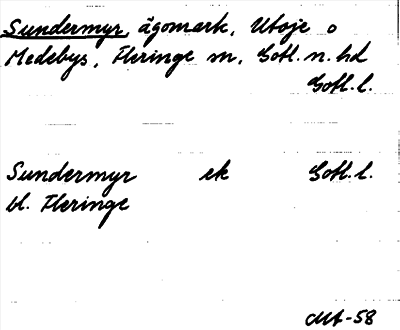 Sundermyr, ägomark, Utoje o
Medebys, Fleringe sn, Gotl. n. hd
Gotl. l.
Sundermyr ek Gotl. l.
bl. Fleringe
MA-58